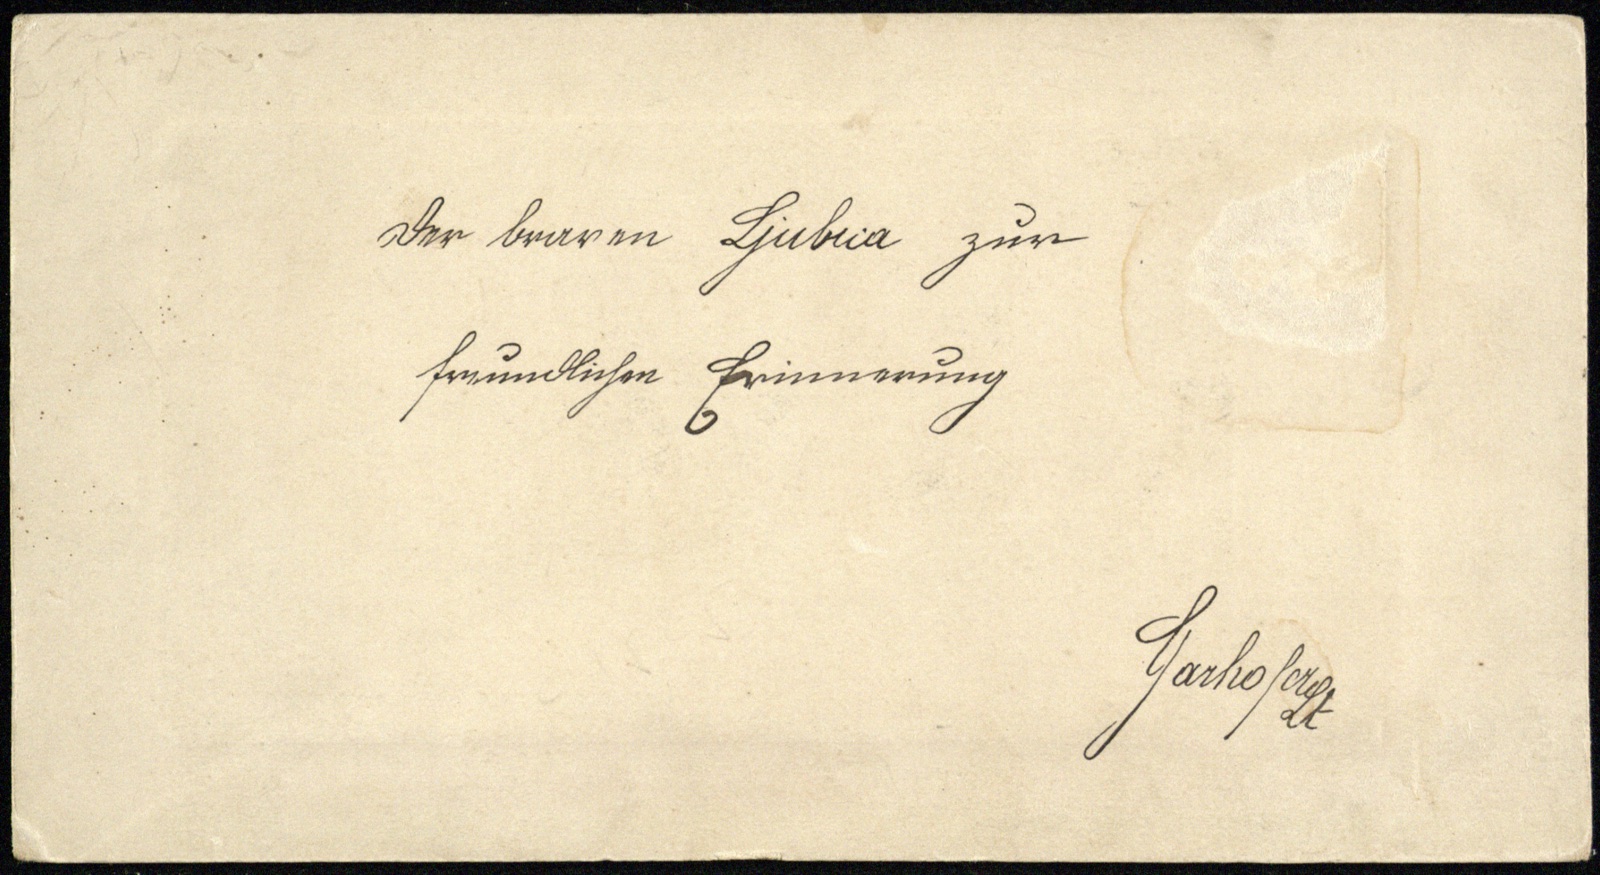 Der braven Ljubica zur
freundlichen Erinnerung
Garhofer
Lt